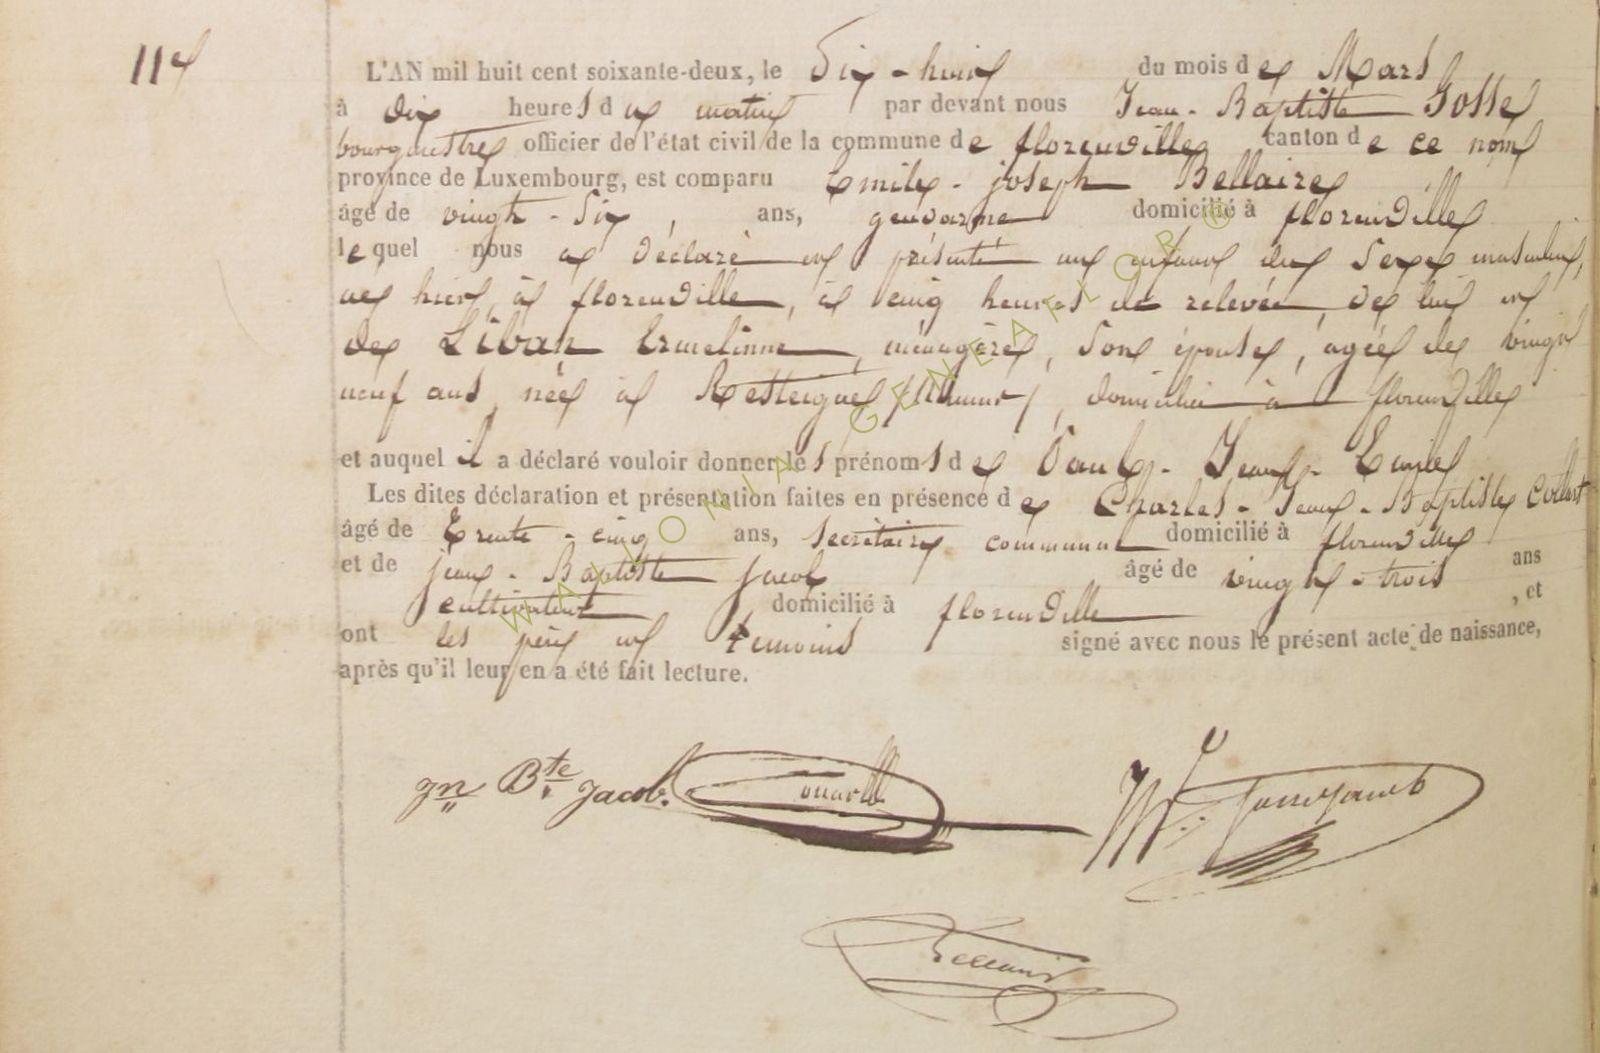 114
L'AN mil huit cent soixante-deux, le Dix-huit du mois de Mars
à dix heures du matin par devant nous Jean-Baptiste Gosse
bourgmestre officier de l'état civil de la commune de florenville canton de ce nom
province de Luxembourg, est comparu Emile-joseph Bellaire
âgé de vingt-six, ans, gendarme domicilié à florenville
lequel nous a déclaré et présenté un enfant du sexe masculin,
né hier, à florenville, à cinq heures de relevée, de lui et
de Liban Ermelinne, ménagère, son épouse, agée de vingt
neuf ans, née à Resteigne (Namur), domiciliée à florenville
et auquel il a déclaré vouloir donner les prénoms de Paul-Jean-Emile
Les dites déclaration et présentation faites en présence de Charles-Jean-Baptiste Collart
âgé de Trente-cinq ans, secrétaire communal domicilié à florenville
et de jean-Baptiste jacob âgé de vingt-trois ans
cultivateur domicilié à florenville , et
ont les père et témoins signé avec nous le présent acte de naissance,
après qu'il leur en a été fait lecture.
Jn Bte Jacob.
Bellaire
WALLONIA GENEAFLOR ©